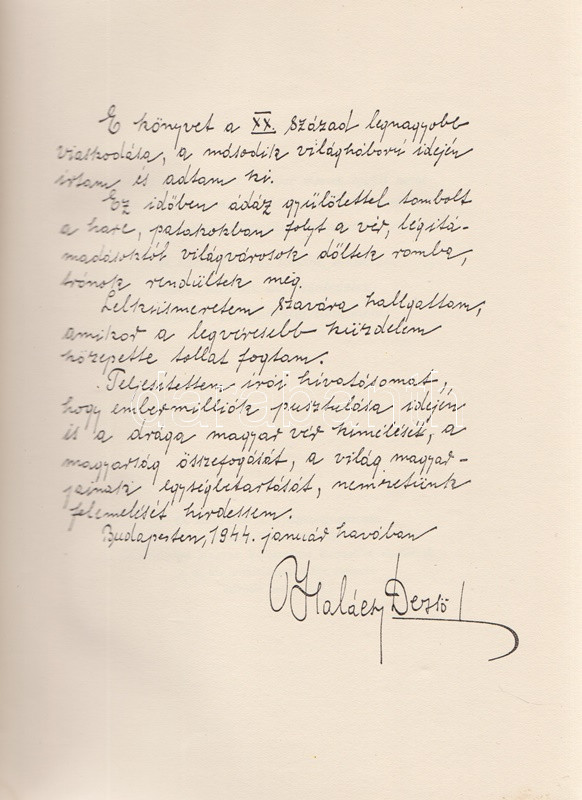 E könyvet a XX. század legnagyobb
viaskodása, a második világháború idején
írtam és adtam ki.
Ez időben ádáz gyűlölettel tombolt
a harc, patakokban folyt a vér, légitá-
madásoktól világvárosok dőltek romba,
trónok rendültek meg.
Lelkiismeretem szavára hallgattam,
amikor a legvéresebb küzdelem
közepette tollat fogtam.
Teljesítettem írói hivatásomat,
hogy embermilliók pusztulása idején
is a drága magyar vér kimélését, a
magyarság összefogását, a világ magyar-
jainak egységbetartását, nemzetünk
felemelését hirdessem.
Budapesten, 1944. január havában
Halácsy Dezső
darabanth